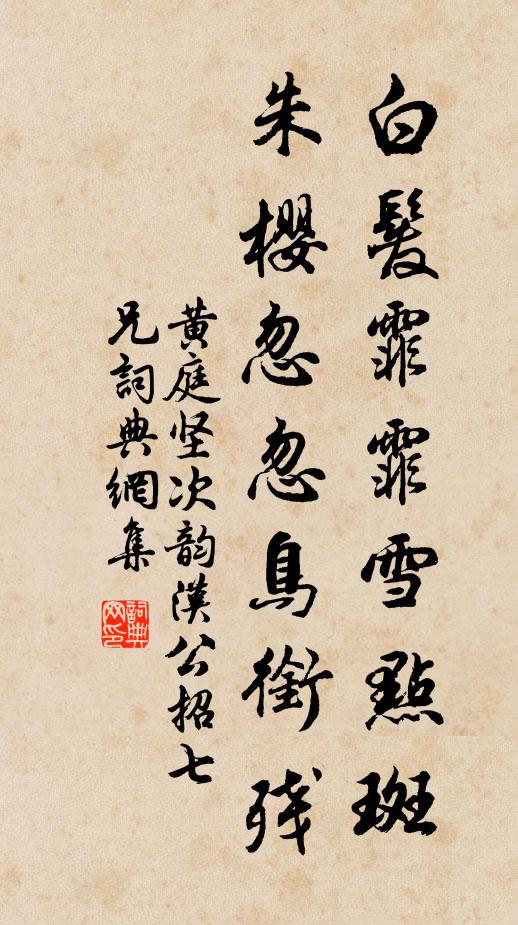 白髮霏霏雪點斑
朱櫻忽忽鳥銜残
黄庭坚次韵漢公招七
兄詞典網集
詞典
网印